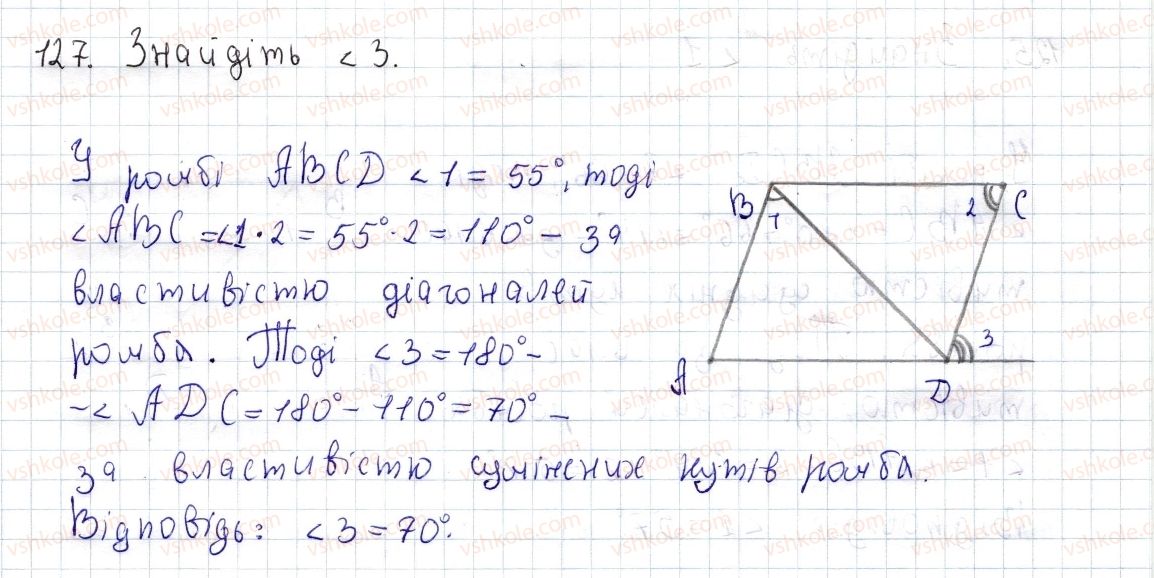 127. Знайдіть < 3.
У ромбі ABCD < 1 = 55°, тоді
< ABC = <1 · 2 = 55° · 2 = 110° – за
властивістю діагоналей
ромба. Тоді < 3 = 180° –
– < ADC = 180° – 110° = 70° –
за властивістю суміжних кутів ромба.
Відповідь: < 3 = 70°.
B 1 2 C
A D 3
vshkole.com